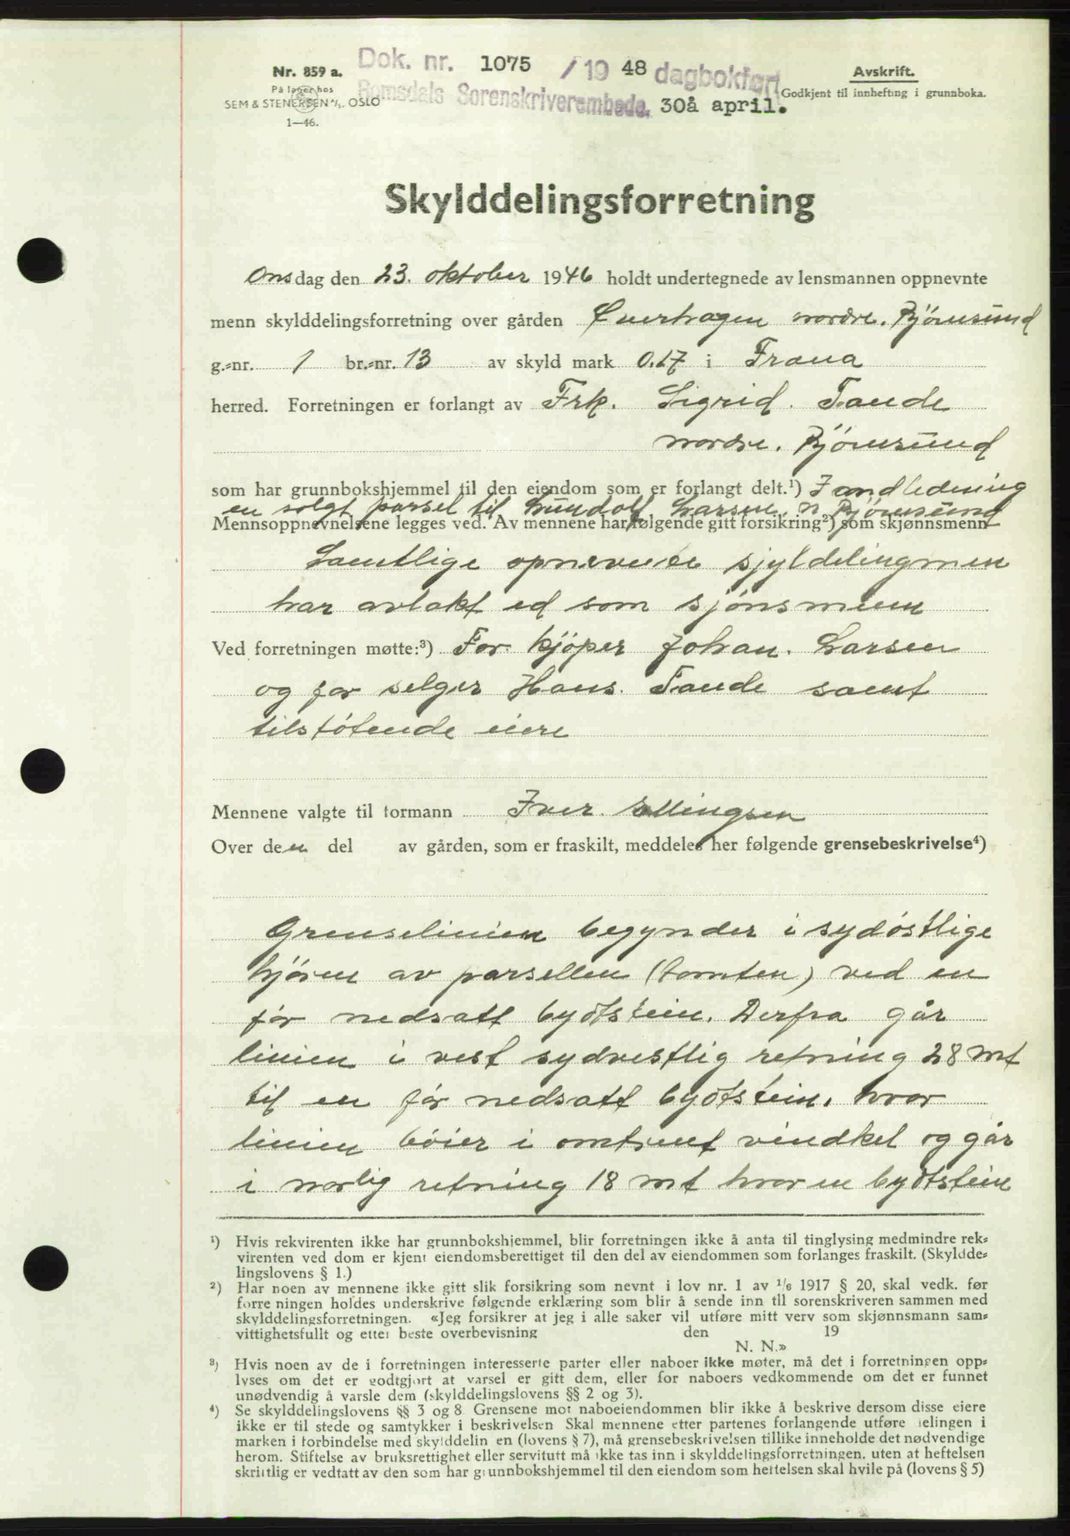 Nr. 859 a.
På lager hos
SEM & STENERSEN A/S, OSLO
1—46.
Dok. nr. 1075 / 19 48 dagbokført
Romsdals Sorenskriverembede, 30å april.
Avskrift.
Godkjent til innhefting i grunnboka.
Skylddelingsforretning
Onsdag den 23. oktober 1946 holdt undertegnede av lensmannen oppnevnte
menn skylddelingsforretning over gården Överhagen nordre. Bjórnsund
g.-nr. 1 br.-nr. 13 av skyld mark 0.17 i Frana
herred. Forretningen er forlangt av Frk. Sigrid. Tande
nordre. Bjórnsund
som har grunnbokshjemmel til den eiendom som er forlangt delt.¹) I andledning
en solgt parsel til Gundolf Larsen n Bjórnsund
Mennsoppnevnelsene legges ved. Av mennene har følgende gitt forsikring²) som skjønnsmenn
Samtlige opnevnte sjyldelingmen
har avlakt ed som sjónsmenn
Ved forretningen møtte:³) For kjóper Johan. Larsen
og for selger Hans. Tande samt
tilstótende eiere
Mennene valgte til formann Iver Ellingsen
Over den del av gården, som er fraskilt, meddeles her følgende grensebeskrivelse⁴)
Grenselinien begynder i sydóstlige
hjóren av parsellen (tomten) ved en
fór nedsatt bydtstein. Derfra går
linien i vest sydvestlig retning 28 mt
til en fór nedsatt bydtstein, hvor
linien bóier i omtrent vindkel og går
i norlig retning 18 mt hvor en bydtstein
¹) Hvis rekvirenten ikke har grunnbokshjemmel, blir forretningen ikke å anta til tinglysing medmindre rek-
virenten ved dom er kjent eiendomsberettiget til den del av eiendommen som forlanges fraskilt. (Skyldde-
lingslovens § 1.)
²) Har noen av mennene ikke gitt slik forsikring som nevnt i lov nr. 1 av 1/6 1917 § 20, skal vedk. før
forretningen holdes underskrive følgende erklæring som blir å sende inn til sorenskriveren sammen med
skylddelingsforretningen. «Jeg forsikrer at jeg i alle saker vil utføre mitt verv som skjønnsmann sam-
vittighetsfullt og etter beste overbevisning den 19
N. N.»
³) Hvis noen av de i forretningen interesserte parter eller naboer ikke møter, må det i forretningen opp-
lyses om det er godtgjort at varsel er gitt dem, eller for naboers vedkommende om det er funnet
unødvendig å varsle dem (skylddelingslovens §§ 2 og 3).
⁴) Se skylddelingslovens §§ 3 og 8. Grensene mot naboeiendommen blir ikke å beskrive dersom disse eiere
ikke er til stede og samtykker i beskrivelsen Skal mennene etter partenes forlangende utføre delingen i
marken i forbindelse med skylddelingen (lovens § 7), må grensebeskrivelsen tillike inneholde det nødvendige
herom. Stiftelse av bruksrettighet eller servitutt må ikke tas inn i skylddelingsforretningen, uten at heftelsen
skriftlig er vedtatt av den som har grunnbokshjemmel til den eiendom som heftelsen skal hvile på (lovens § 5)